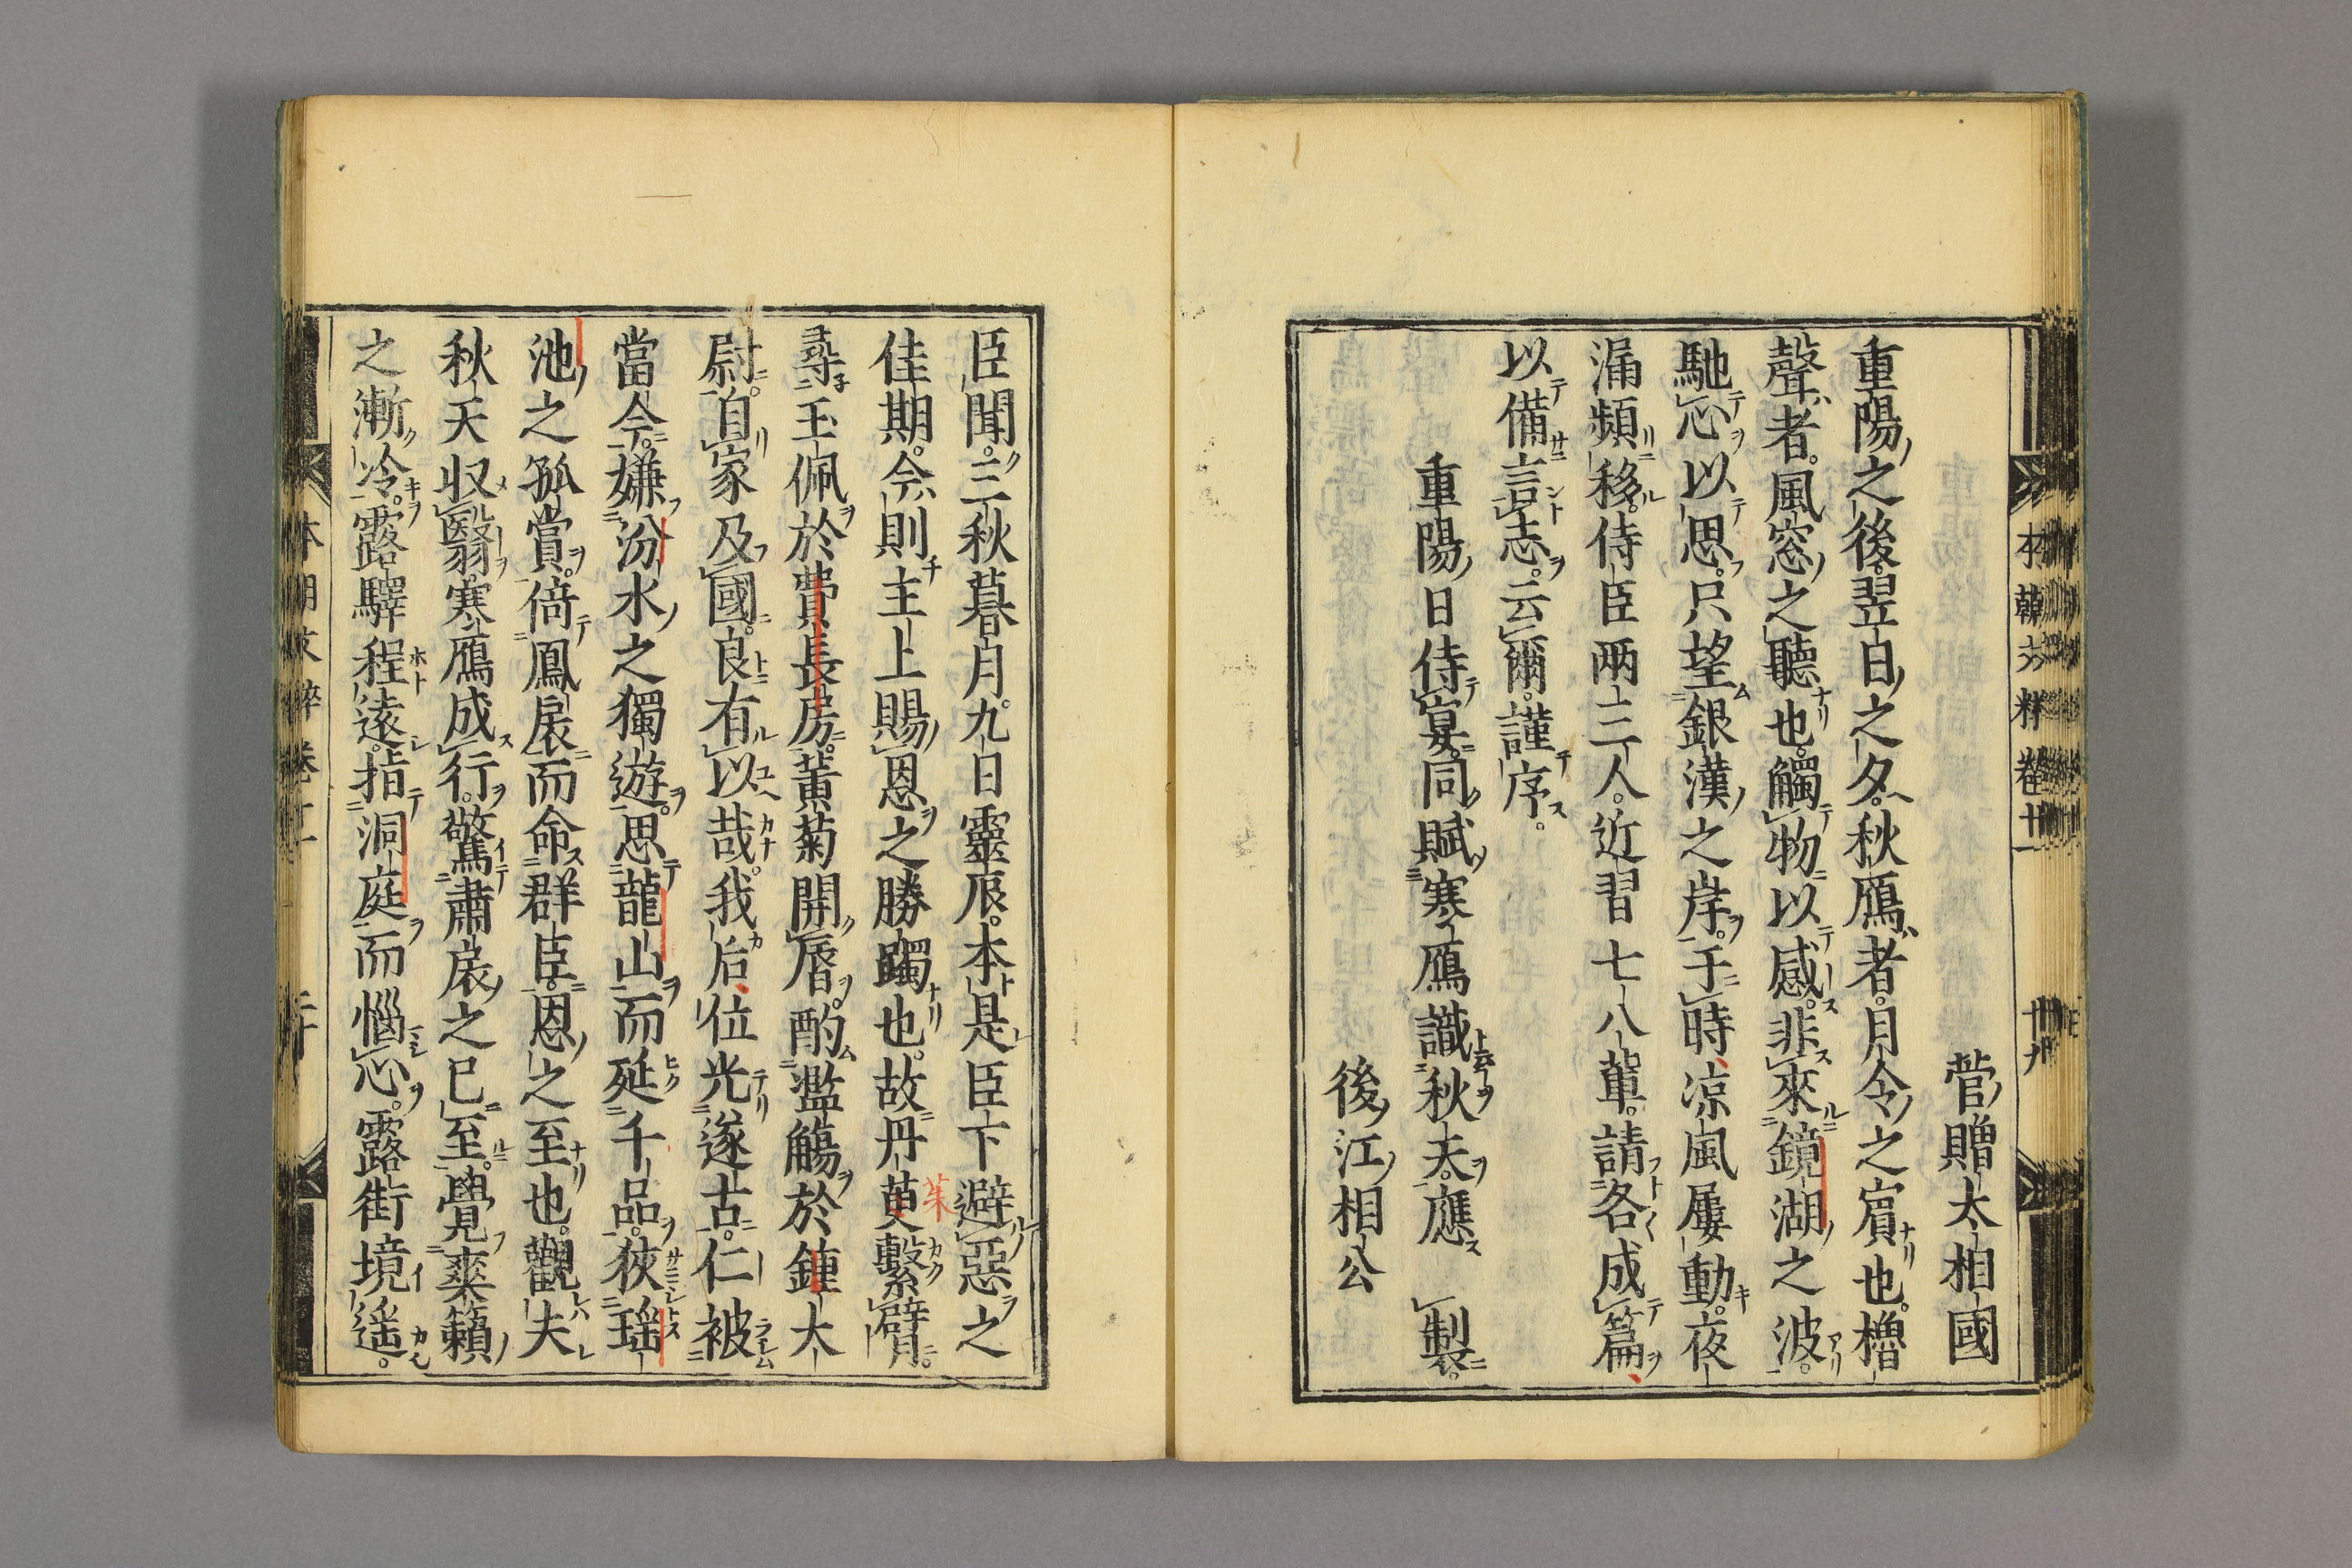 菅贈大相國
重陽之後翌日之夕。秋鴈者。月令之賔也。櫓
聲者。風窓之聽也。觸物以感。非來鏡湖之波。
馳心以思。只望銀漢之岸。于時凉風屢動。夜
漏頻移。侍臣兩三人。近習七八輩。請各成篇
以備言志。云爾。謹序。
重陽日侍宴。同賦寒鴈識秋天。應 製。
後江相公
臣聞。三秋暮月。九日靈辰。本是臣下避惡之
佳期。今則主上賜恩之勝躅也。故丹茰繫臂。
茱
尋玉佩於費長房。黃菊開脣。酌濫觴於鍾大
尉。自家及國。良有以哉。我后位光遂古。仁被
當今。嫌汾水之獨遊。思龍山而延千品。狹瑶
池之孤賞。倚鳳扆而命群臣。恩之至也。觀夫
秋天収翳。寒鴈成行。驚肅扆之已至。覺爽籟
之漸冷。露驛程遠。指洞庭而惱心。露街境遥。
本朝文粹卷十一
十九
本朝文粹卷十一
二十